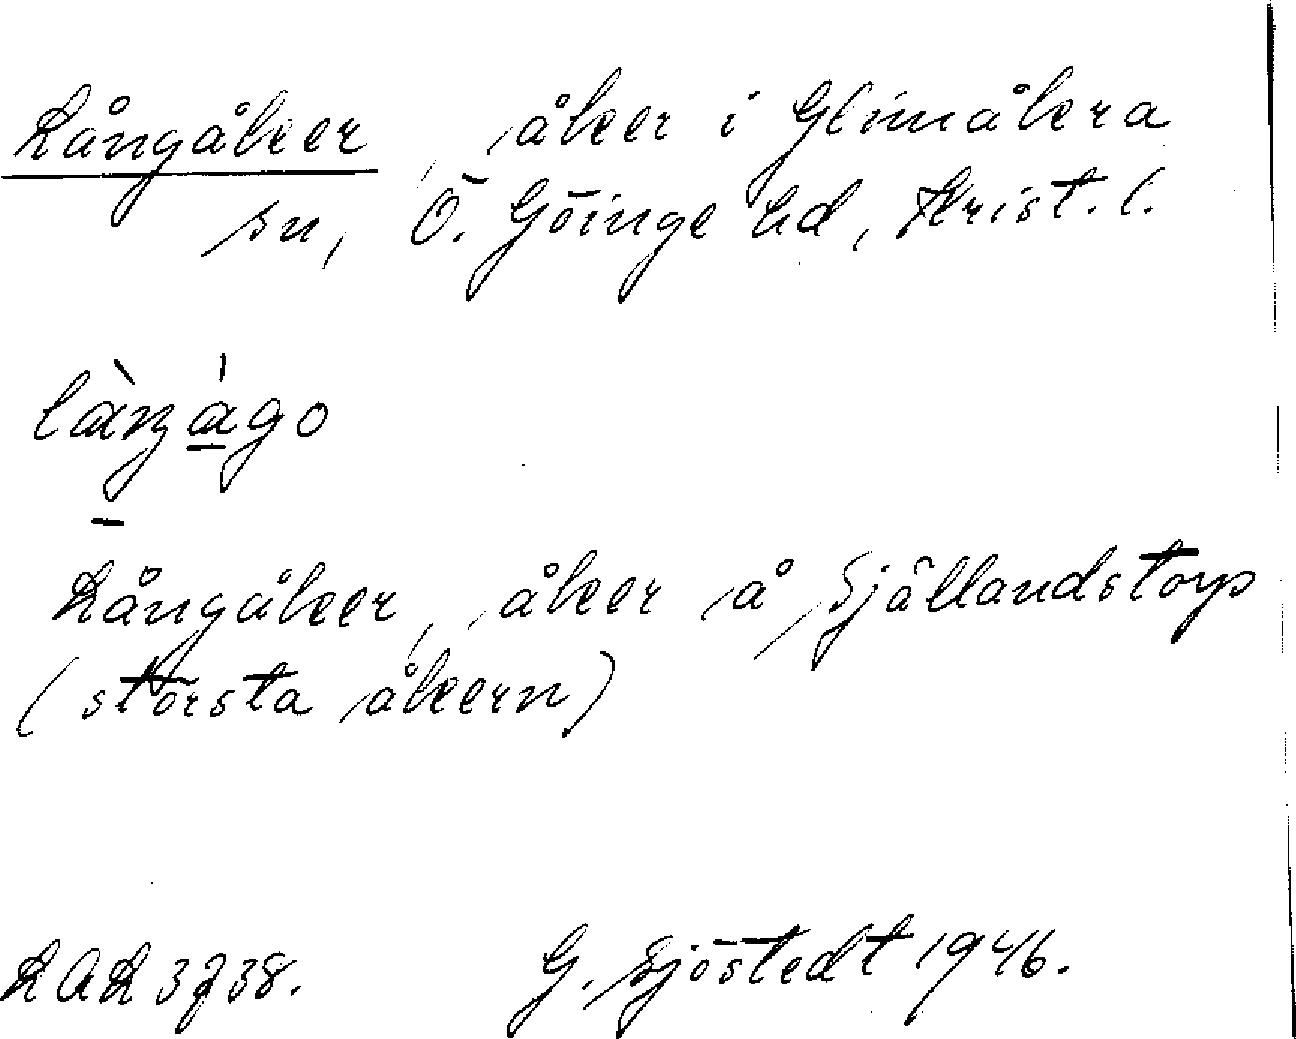 Långåker, åker i Glimåkra
sn, Ö. Göinge hd, Krist. l.
làŋágo
Långåker, åker å Sjöllandstorp
(största åkern)
LAL 3738. G. Sjöstedt 1946.